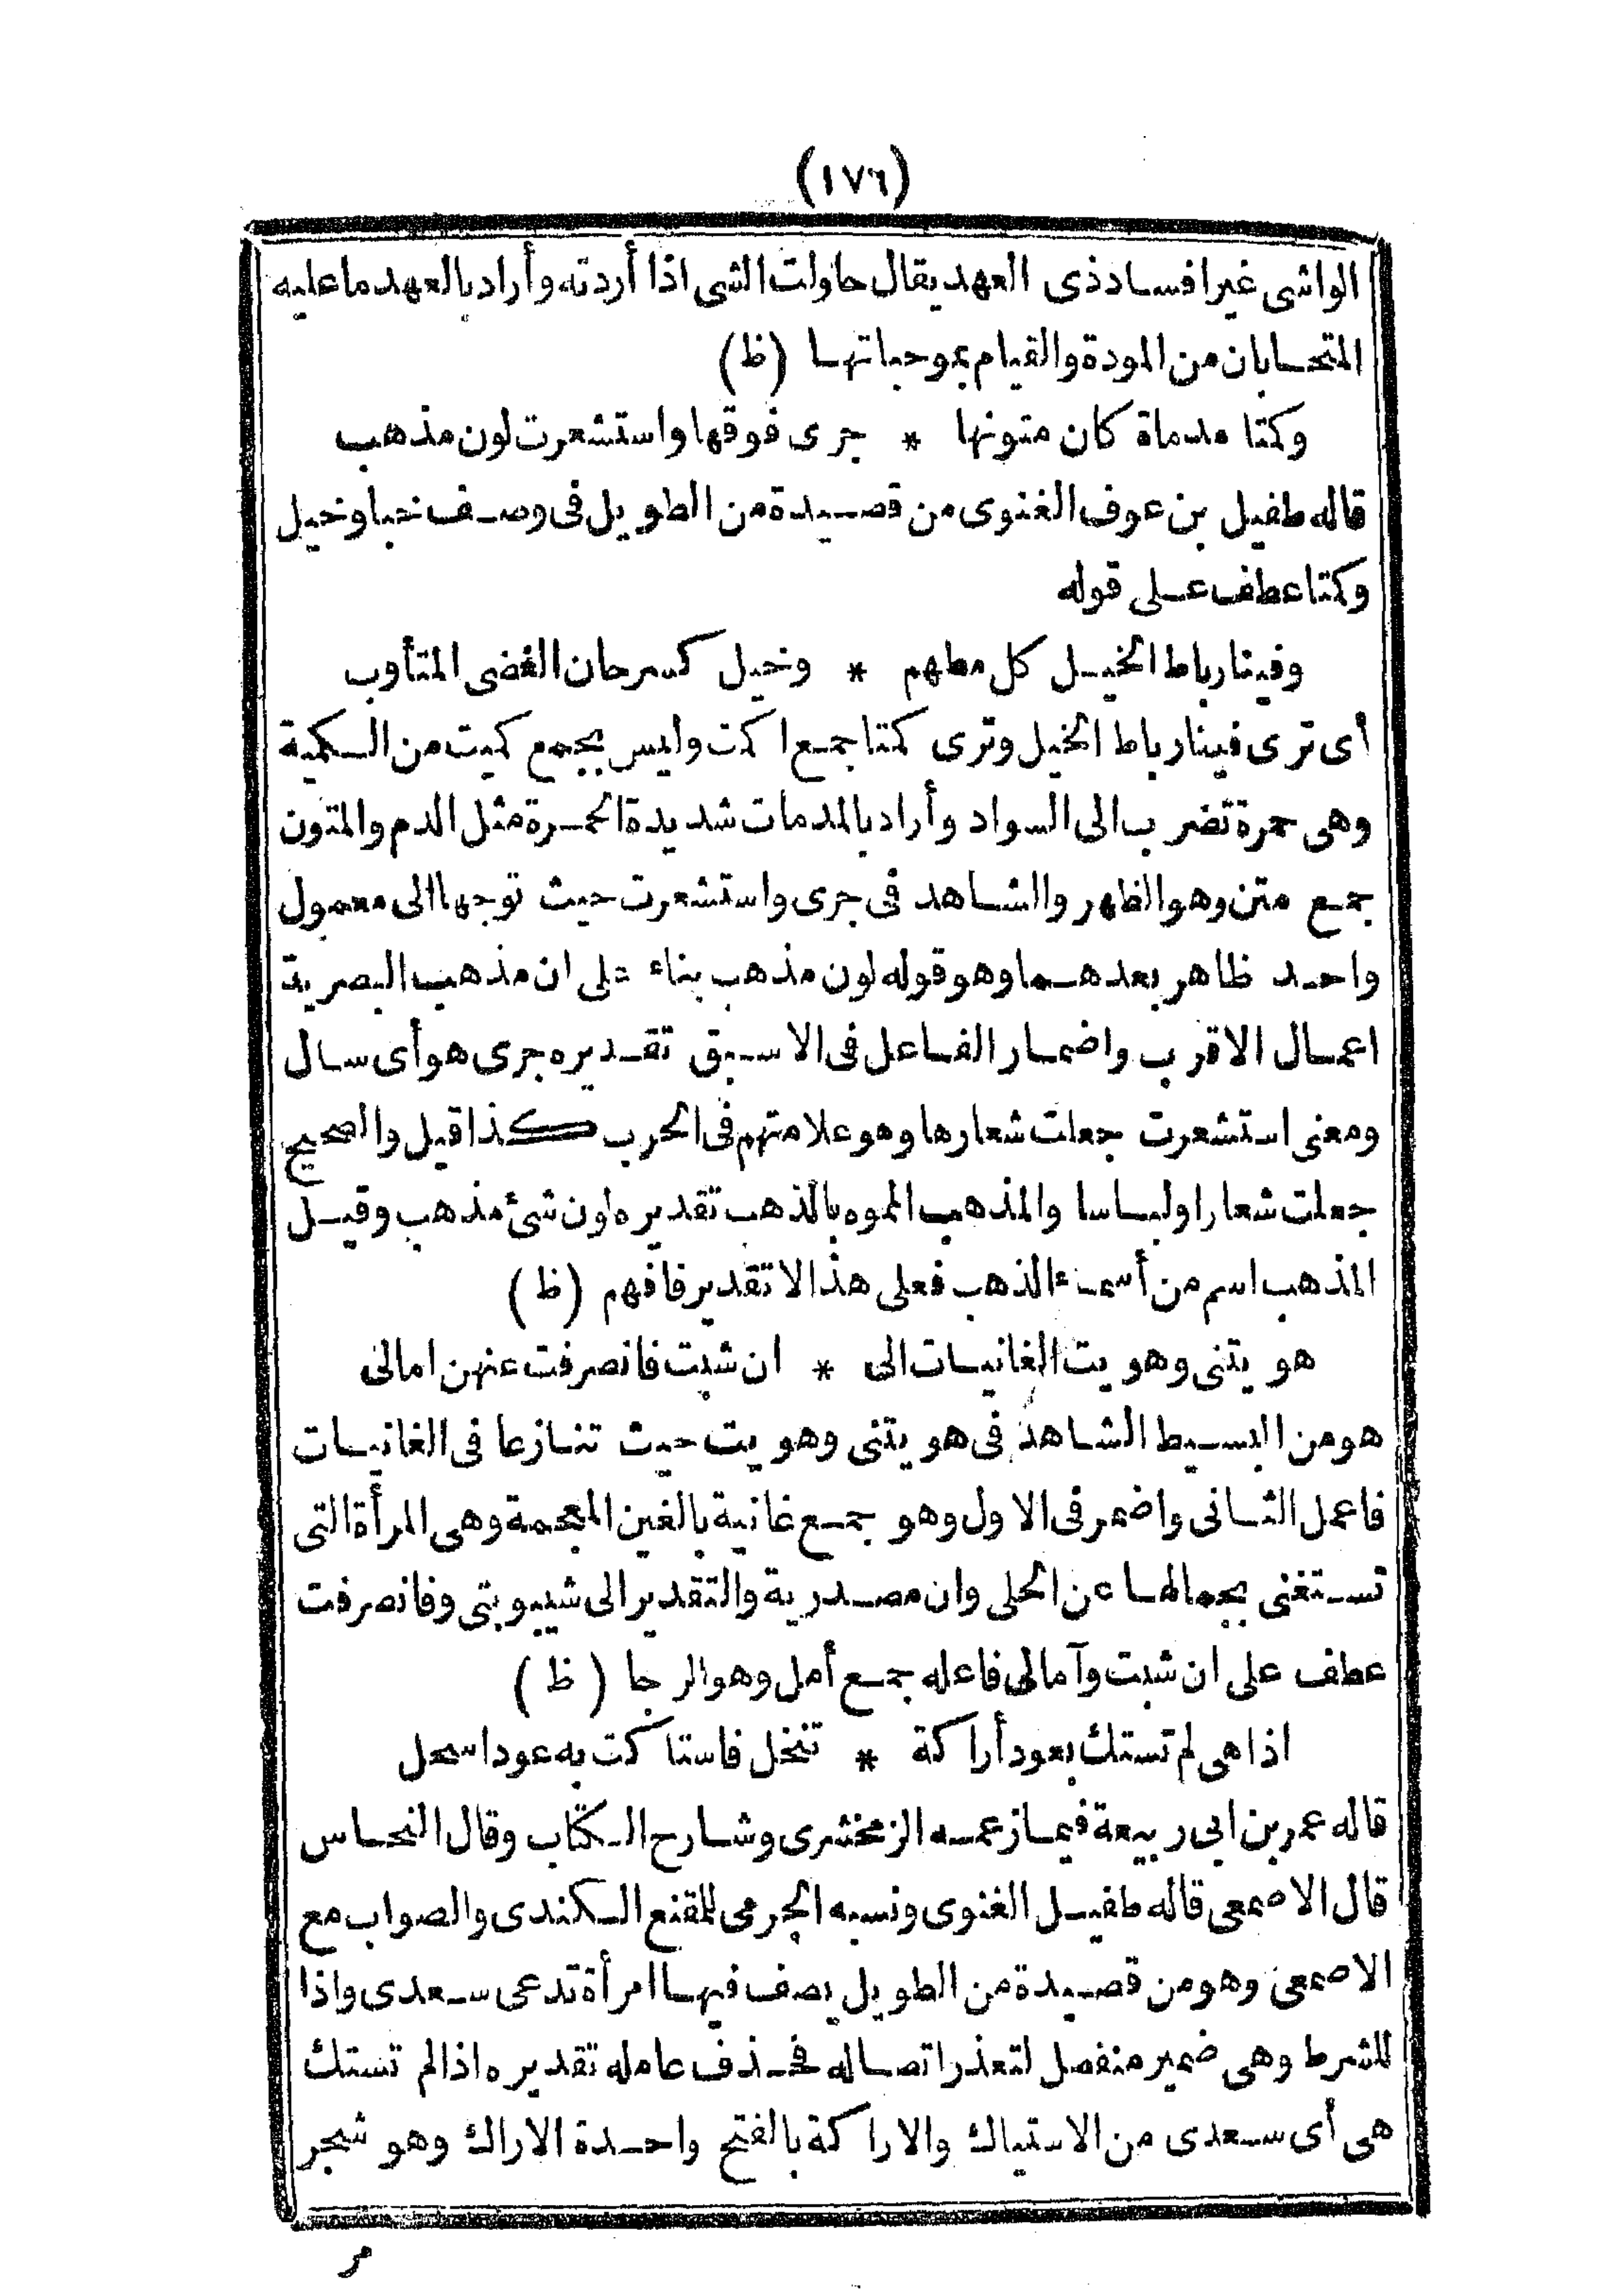 (١٧٦)
الواشى غير افساد ذى العهد يقال حاولت الشى اذا أردته وأراد بالعهد ما عليه
المتحابان من المودة والقيام بموجباتها (ظ)
وكمتا مدماة كان متونها * جرى فوقها واستشعرت لون مذهب
قاله طفيل بن عوف الغنوى من قصيدة من الطويل فى وصف خبا وخيل
وكمتا عطف على قوله
وفينا رباط الخيل كل مطهم * وخيل كسرحان الغضى المتأوب
أى ترى فينا رباط الخيل وترى كمتا جمع اكمت وليس بجمع كميت من الكمية
وهى حمرة تضرب الى السواد وأراد بالمدمات شديدة الحمرة مثل الدم والمتون
جمع متن وهو الظهر والشاهد فى جرى واستشعرت حيث توجها الى معمول
واحد ظاهر بعدهما وهو قوله لون مذهب بناء على ان مذهب البصرية
اعمال الاقرب واضمار الفاعل فى الاسبق تقديره جرى هو أى سال
ومعنى استشعرت جعلت شعارها وهو علامتهم فى الحرب كذا قيل والصحيح
جعلت شعارا ولباسا والمذهب المموه بالذهب تقديره لون شئ مذهب وقيل
المذهب اسم من أسماء الذهب فعلى هذا لا تقدير فافهم (ظ)
هويتنى وهويت الغانيات الى * ان شبت فانصرفت عنهن امالى
هو من البسيط الشاهد فى هويتنى وهويت حيث تنازعا فى الغانيات
فاعمل الثانى واضمر فى الاول وهو جمع غانية بالغين المعجمة وهى المرأة التى
تستغنى بجمالها عن الحلى وان مصدرية والتقدير الى شيبوبتى وفانصرفت
عطف على ان شبت وآمالى فاعله جمع أمل وهو الرجا (ظ)
اذا هى لم تستك بعود أراكة * تنخل فاستاكت به عود اسحل
قاله عمر بن ابى ربيعة فيما زعمه الزمخشرى وشارح الكتاب وقال النحاس
قال الاصمعى قاله طفيل الغنوى ونسبه الجرمى للمقنع الكندى والصواب مع
الاصمعى وهو من قصيدة من الطويل يصف فيها امرأة تدعى سعدى واذا
للشرط وهى ضمير منفصل لتعذر اتصاله فحذف عامله تقديره اذا لم تستك
هى أى سعدى من الاستياك والاراكة بالفتح واحدة الاراك وهو شجر
مر